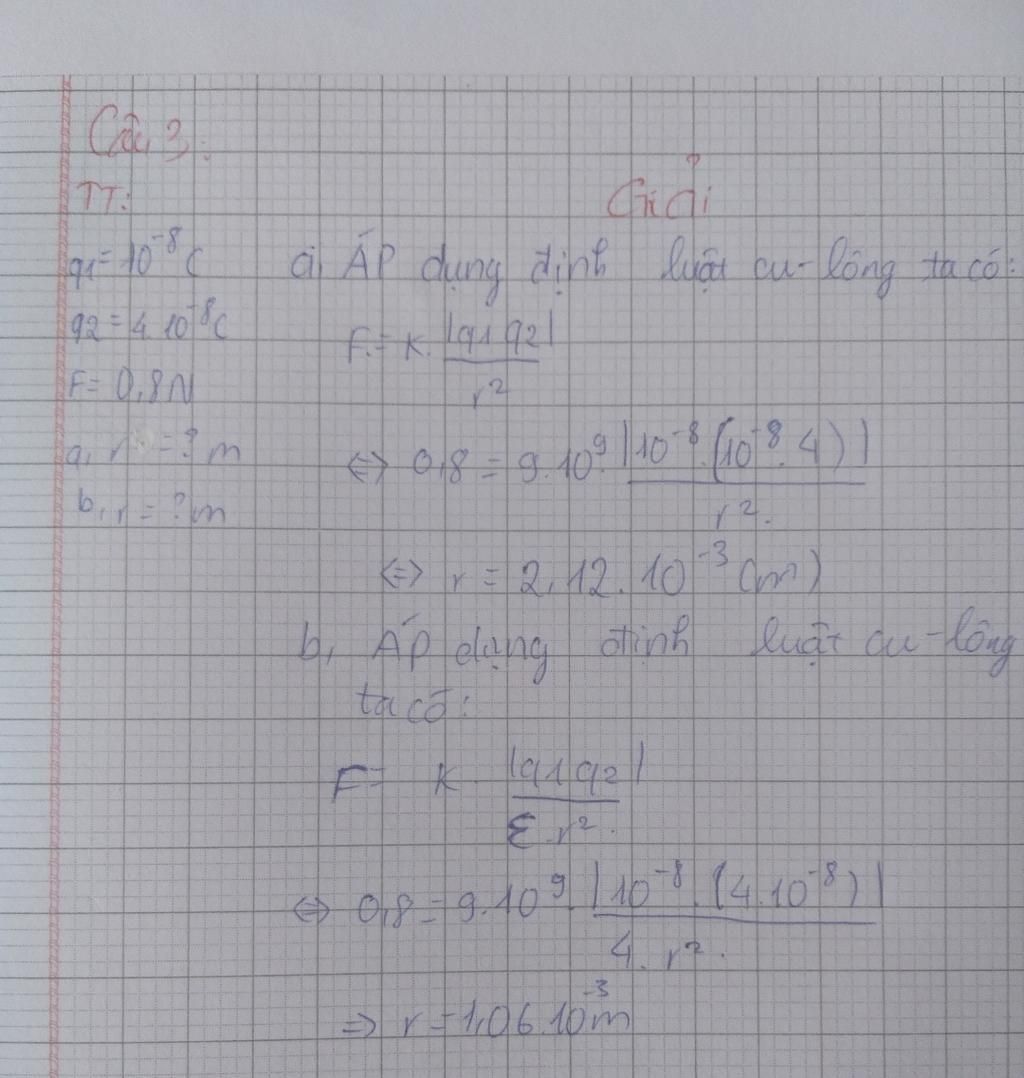 Câu 3:
TT:
Giải
q1 = 10⁻⁸ C
q2 = 4.10⁻⁸C
F = 0,8N
a, r = ? m
b, r = ? m
a, ÁP dụng định luật cu-lông ta có:
F = K. |q1 q2| / r²
⇔ 0,8 = 9.10⁹. |10⁻⁸.(10⁻⁸.4)| / r².
⇔ r = 2,12.10⁻³ (m)
b, ÁP dụng định luật cu-lông
ta có:
F = K. |q1 q2| / ε.r².
⇔ 0,8 = 9.10⁹. |10⁻⁸.(4.10⁻⁸)| / 4.r².
⇒ r = 1,06.10⁻³m